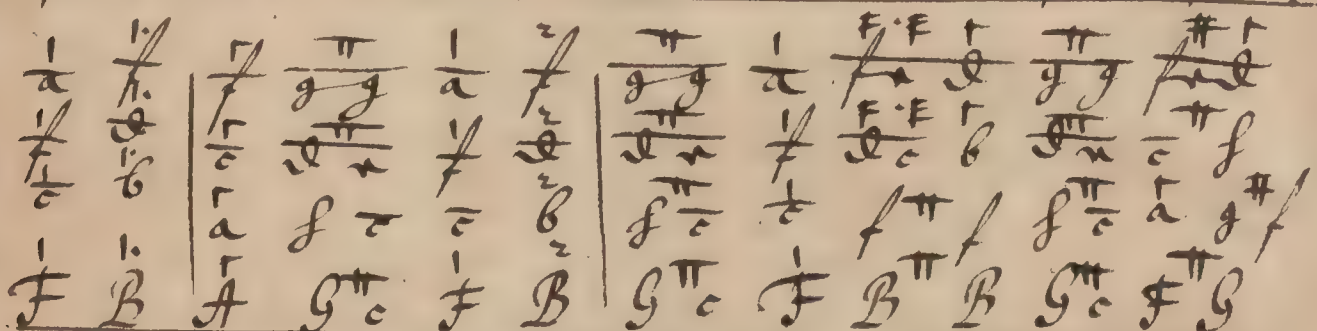 a f | f g g a f | g g a f e d g g f e d
f d | c d e f d | d e f d c b d e c f
c b | a f c c b | f c c f f f c a g f
F B | A G c F B | G c F B B G c F G